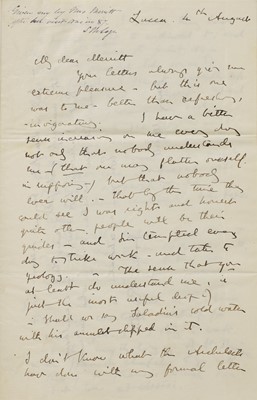 Given me by Miss Merritt
Lucca. 4th August
My dear Merritt
Your letters always give me
extreme pleasure - but this one
was to me - better than refreshing,
- invigorating. I have a bitter
sense increasing on me every day
not only that nobody understands
me (that one may flatter oneself
in supposing) but that nobody
ever will. - that by the time they
could see I was right and honest
quite other people will be their
guides - and I'm tempted every
day to strike work - and take to
geology. - The sense that you
at least do understand me, is
just the most useful help
- shall we say Saladin's cold water
with his amulet dipped in it.
I don't know what the Architects
have done with my formal letter